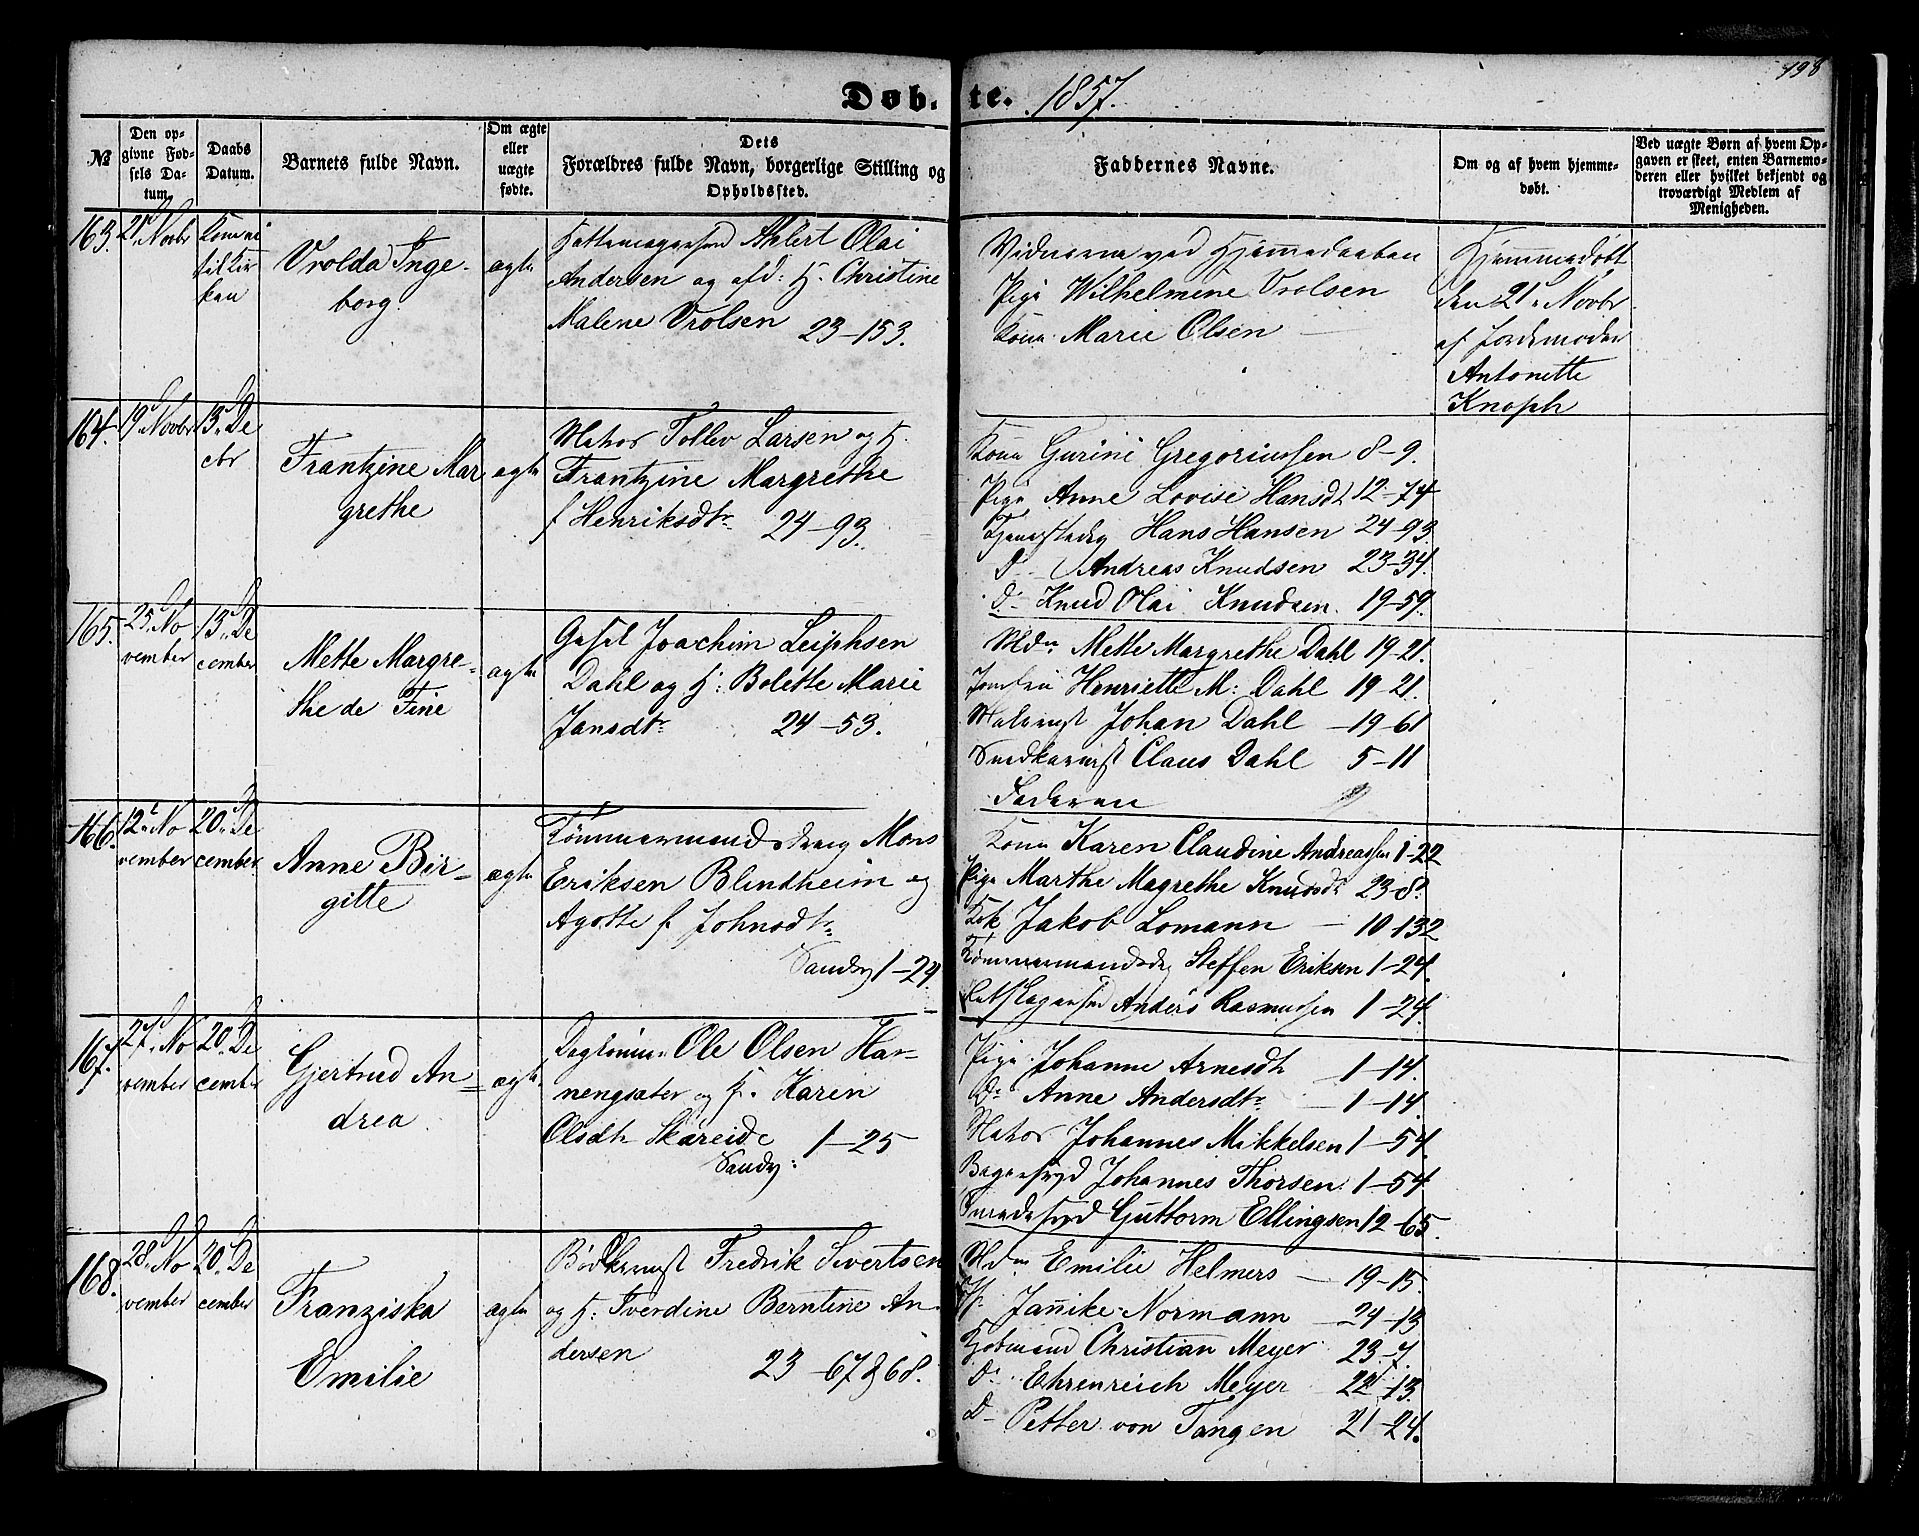 198
Døb- te. 1857.
№
Den op-
givne Fød-
sels Da-
tum.
Daabs
Datum.
Barnets fulde Navn.
Om ægte
eller
uægte
fødte.
Dets
Forældres fulde Navn, borgerlige Stilling og
Opholdssted.
Faddernes Navne.
Om og af hvem hjemme-
døbt.
Ved uægte Børn af hvem Op-
gaven er skeet, enten Barnemo-
deren eller hvilket bekjendt og
troværdigt Medlem af
Menigheden.
163. 21 Novbr
Kom ei
til Kir
ken
Vrolda Inge-
borg
ægte
Pottemagersvd Ahlert Olai
Andersen og afd: H. Christine
Malene Vrolsen 23-153.
Vidnerne ved Hjemmedaaben
Pige Wilhelmine Vrolsen
Kone Marie Olsen
Hjemmedøbt
den 21 Novbr
af Jordemoder
Antonette
Knoph
164. 19 Novbr
13 De
cbr
Frantzine Mar
grethe
ægte
Matros Tollev Larsen og H.
Frantzine Margrethe
f Henriksdtr 24-93.
Kone Gurine Gregoriussen 8-9.
Pige Anne Lovise Hansdt 12-74
Hans Hansen 24-93.
D Andreas Knudsen 23-34.
d- Knud Olai Knudsen. 19-59.
165. 25 No
vember
13 De
cember
Mette Margre-
the de Fine
ægte
Joachim Leiphsen
Dahl og H: Bolette Marie
Jansdtr 24-53.
Mdm Mette Margrethe Dahl 19-21.
Jomfru Henriette M: Dahl 19-21.
Malermst Johan Dahl 19-61
Snedkermst Claus Dahl 5-11
Faderen
166. 12 No
vember
20 De
cember
Anne Bir-
gitte
ægte
Tømmermandsdreng Mons
Eriksen Blindheim og
Agotte f Johnsdtr
Sandv 1-24.
Kone Karen Claudine Andreassen 1-22
Pige Marthe Magrethe Knudsdt 23-8.
Kok Jakob Lomann 10-132
Tømmermandsdrg Steffen Eriksen 1-24.
Anders Rasmussen 1-24.
167. 27 No
vember
20 De
cember
Gjertrud An-
drea
ægte
Daglønner Ole Olsen Har-
nengsater og H. Karen
Olsdtr Skareide 1-25
Sandv:
Pige Johanne Arnesdtr 1-14.
D Anne Andersdtr 1-14.
Matros Johannes Mikkelsen 1-54.
Bagersvd Johannes Thorsen 1-54
Smedesvd Guttorm Ellingsen 12-65.
168. 28 No
vember
20 De
cember
Franziska
Emilie
ægte
Bødkermst Fredrik Sivertsen
og H. Sverdine Berntine An-
dersen 23-67 & 68.
Mdm Emilie Helmers 19-15.
Jannike Normann 24-13
Kjøbmand Christian Meyer 23-7.
D Ehrenreich Meyer 22-13.
D- Petter von Tangen 21-24.